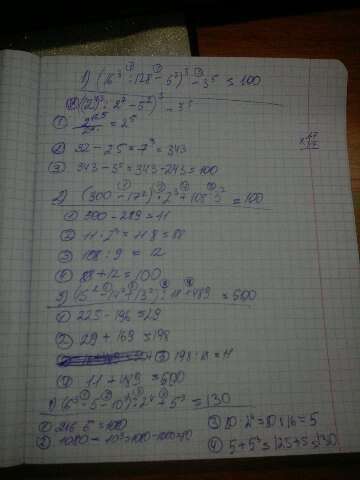 1) (16³ : 128 - 5²)³ - 3⁵ = 100
(2⁴)³ : 2⁷ - 5²)³ - 3⁵
① = 2⁵
② 32 - 25 = 7³ = 343
③ 343 - 3⁵ = 343 - 243 = 100
2) (300 - 17²) · 2³ + 108 : 3² = 100
① 300 - 289 = 11
② 11 · 2³ = 11 · 8 = 88
③ 108 : 9 = 12
④ 88 + 12 = 100
3) (15² - 14² + 13²) : 18 + 489 = 500
① 225 - 196 = 29
② 29 + 169 = 198
③ 198 : 18 = 11
④ 11 + 489 = 500
4) (6³ · 5 - 10³) : 2⁴ + 5³ = 130
① 216 · 5 = 1080
② 1080 - 10³ = 1080 - 1000 = 80
③ 80 : 2⁴ = 80 : 16 = 5
④ 5 + 5³ = 125 + 5 = 130